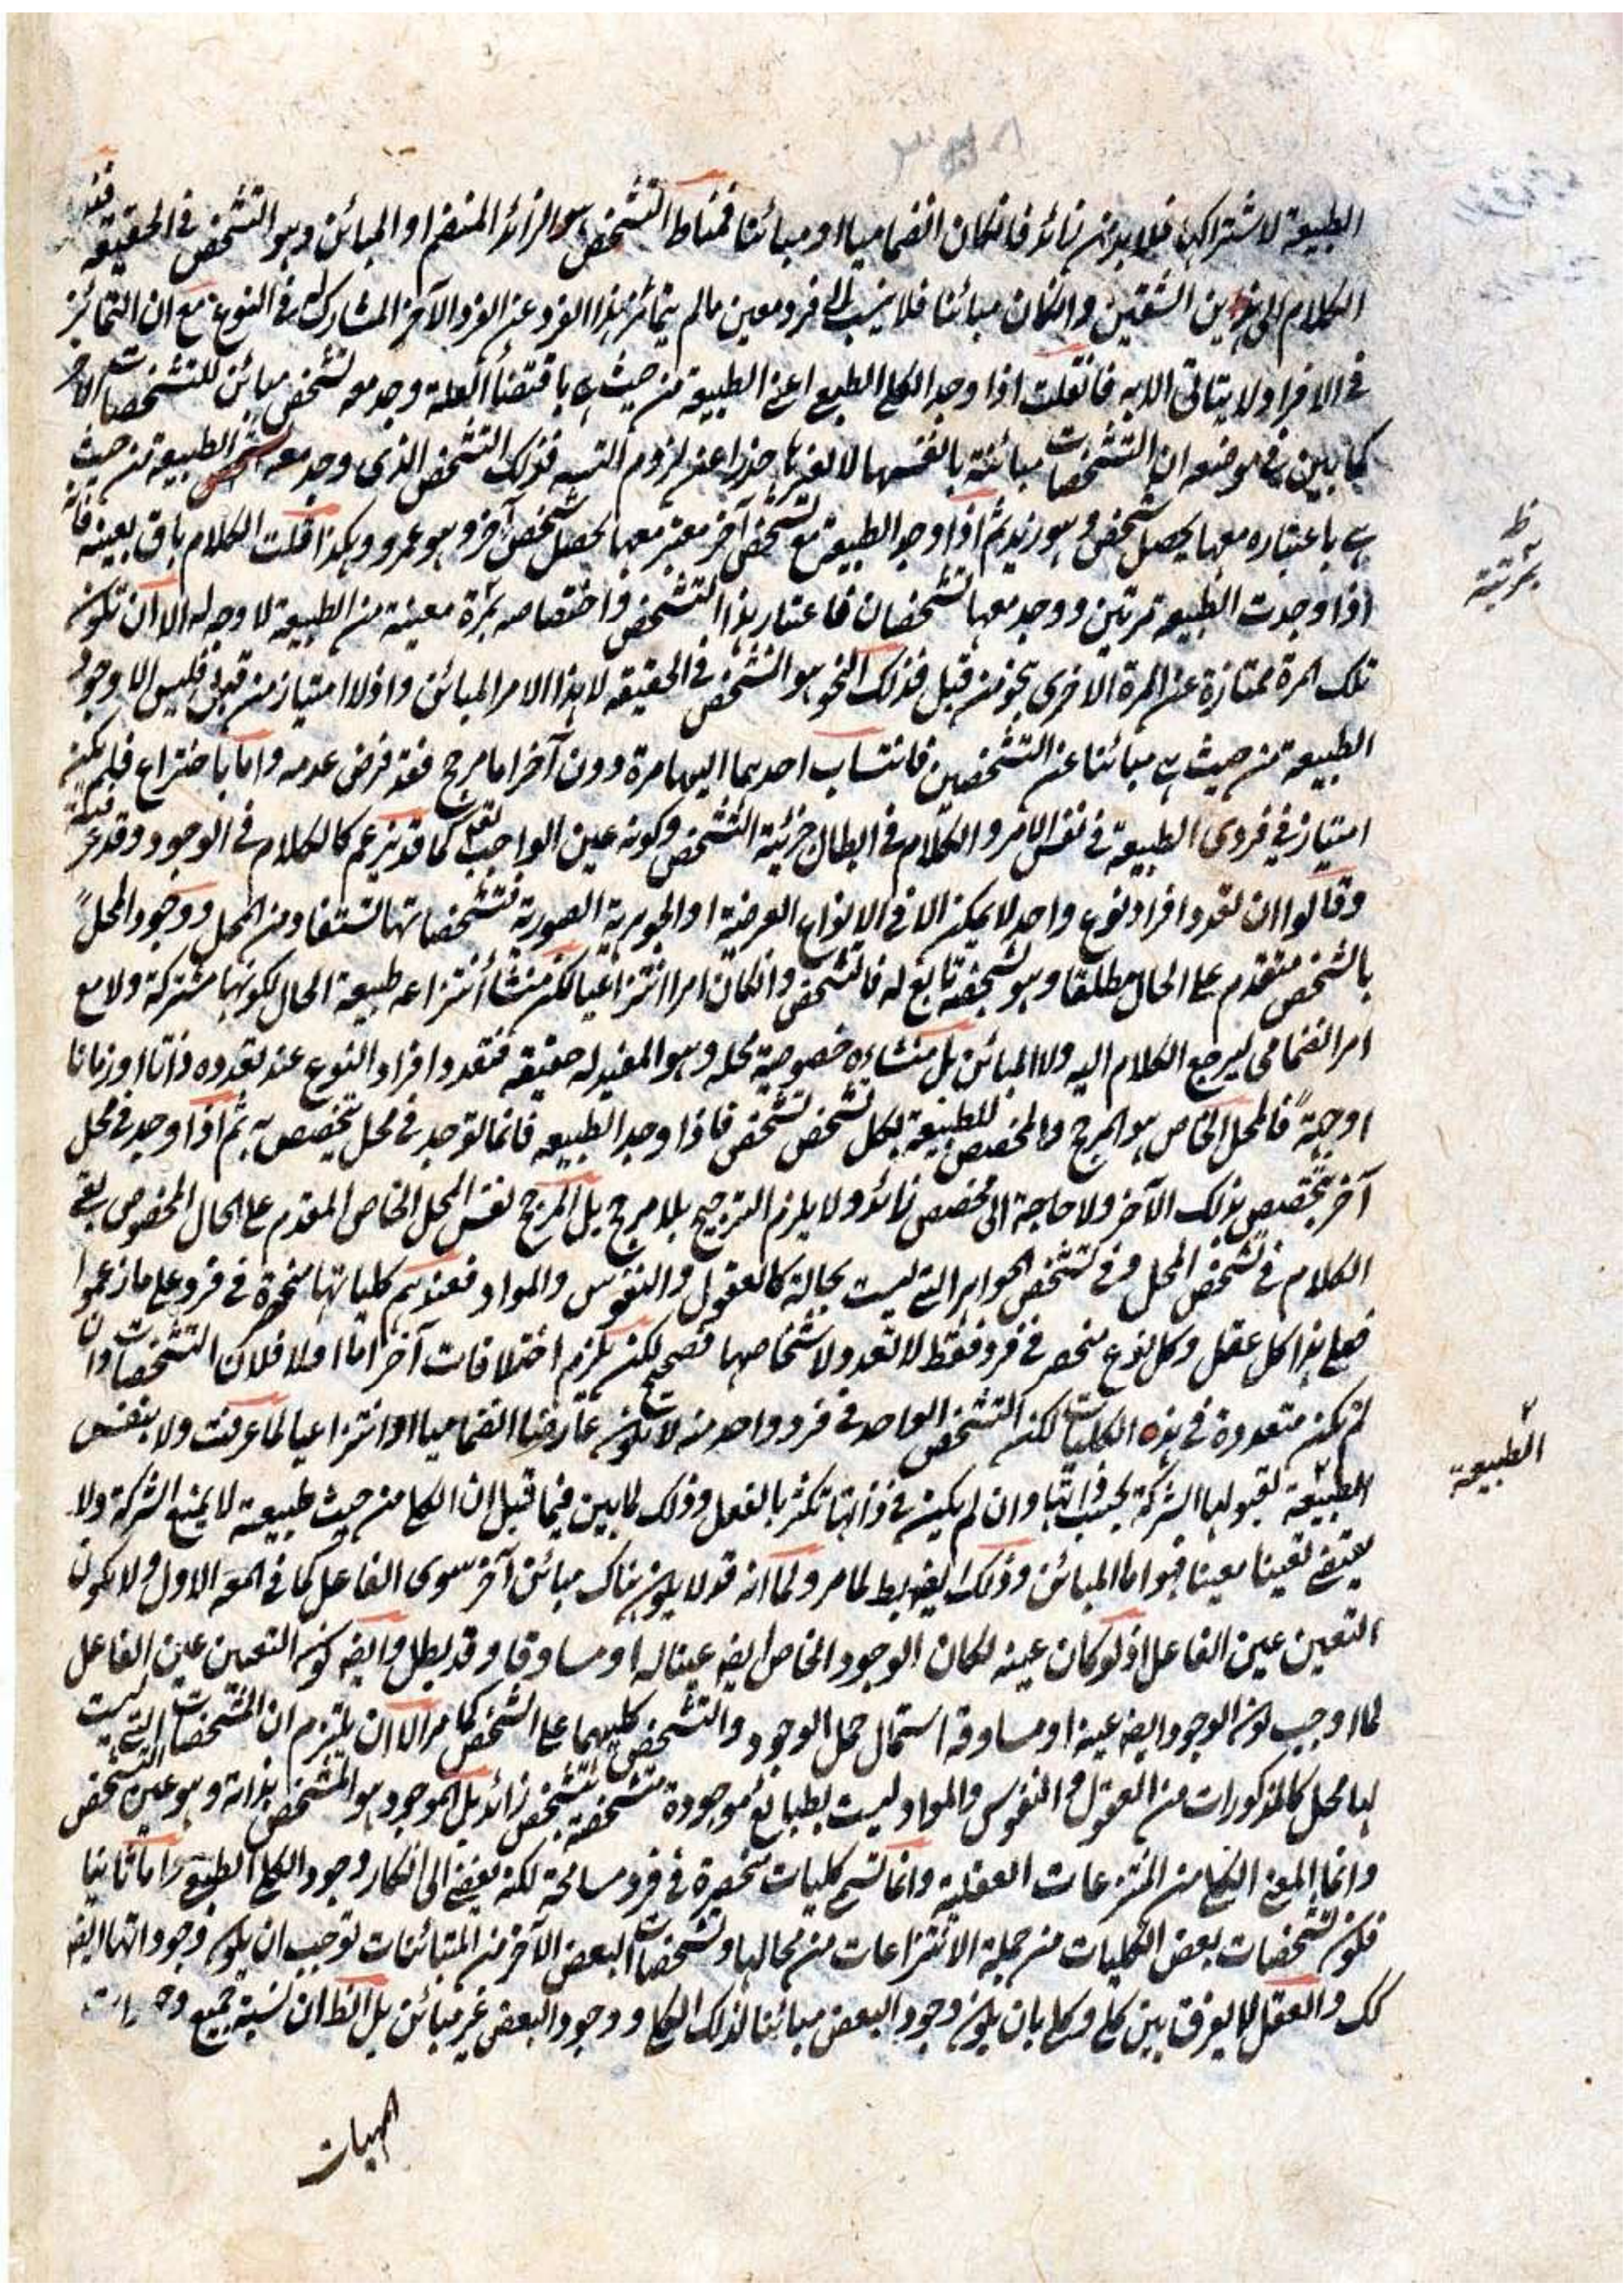 الطبيعة لاشتراكها فلابد من زائد فانكان انضماميا او مبائنا فمناط التشخص هو الزائد المنضم او المبائن وهو التشخص في الحقيقة
الكلام الى هذين الشقين وانكان مبائنا فلا ينسب الى فرد معين مالم يتمائز هذا الفرد عن الفرد الآخر المشارك له في النوع مع ان التمائز
في الافراد لا يتاتى الا به فانقلت اذا وجد الكلي الطبعي اعني الطبيعة من حيث هي باقتضاء العلة وجد معه تشخص مبائن للتشخصات الاخر
كما بين في موضعه ان التشخصات مبائنة بانفسها لا بغيرها حذرا عن لزوم التسلسه فذلك التشخص الذي وجد معه الطبيعة من حيث
هي باعتباره معها يحصل شخص وهو زيد ثم اذا وجد الطبيعة مع تشخص آخر معتبر معها يحصل شخص آخر وهو عمرو وهكذا قلت الكلام باق بعينه فانه
ظ
بمرتبة
اذا وجدت الطبيعة مرتين ووجد معها تشخصان فاعتبار هذا التشخص واختصاصه بمرة معينة من الطبيعة لا وجه له الا ان تكون
تلك المرة ممتازة عن المرة الاخرى بنحو من قبل فذلك النحو هو التشخص في الحقيقة لا هذا الامر المبائن واذ لا امتياز من قبل فليس الا وجود
الطبيعة من حيث هي مبائنا عن التشخصين فانتساب احدهما اليها مرة دون آخر اما مرجح فقد فرض عدمه واما باختراع فلم يكن
امتياز في فردي الطبيعة في نفس الامر والكلام في ابطال جزئية التشخص وكونه عين الواجب تعالى كما قد يزعم كالكلام في الوجود وقد عرفته
وقالوا ان تعدد افراد نوع واحد لا يمكن الا في الانواع العرضية او الجوهرية الصورية فتشخصاتها تستفاد من المحل ووجود المحل
بالشخص متقدم على الحال مطلقا وهو بشخصه تابع له فالتشخص وانكان امرا انتزاعيا لكن منشأ انتزاعه طبيعة الحال لكونها مشتركة ولا مع
امر انضمامي ليرجع الكلام اليه ولا المبائن بل منشاءه خصوصية محله وهو المفيد له حقيقة فتعدد افراد النوع عند تعدده ذاتا او زمانا
او جهة فالمحل الخاص هو المرجح والمخصص للطبيعة بكل تشخص تشخص فاذا وجد الطبيعة فانما توجد في محل يخصص به ثم اذا وجد في محل
آخر يتخصص بذلك الآخر ولا حاجة الى مخصص زائد ولا يلزم الترجيح بلا مرجح بل المرجح نفس المحل الخاص المقدم على الحال المخصوص بقي
الكلام في تشخص المحل وفي تشخص الجواهر التي ليست بحالة كالعقول والنفوس والمواد فعندهم كلياتها منحصرة في فرد على ما زعموا
فعلى هذا كل عقل وكل نوع منحصر في فرد فقط لا تعدد لاشخاصها فصحيح لكن يلزم اختلافات آخر اما اولا فلان التشخصات وان
لم يكن متعددة في هذه الكليات لكن التشخص الواحد في فرد واحد منه لا يكون عارضا انضماميا او انتزاعيا لما عرفت ولا بنفس
الطبيعة
الطبيعة لقبولها الشركة بحسب ذاتها وان لم يكن في ذاتها تكثر بالفعل وذلك لما بين فيما قبل ان الكلي من حيث طبيعة لا يمنع الشركة ولا
يقتضي تعينا معينا فهو اما المبائن وذلك ايضه بط لما مر ولما انه قد لا يكون هناك مبائن آخر سوى الفاعل كما في المعه الاول ولا يكون
التعين عين الفاعل اذ لو كان عينه لكان الوجود الخاص ايضه عينا له او مساوقا وقد بطل وايضه كون التعين عين الفاعل
لما اوجب كون الوجود ايضه عينه او مساوقه استحال حمل الوجود والتشخص كليهما على الشخص كما مر الا ان يلتزم ان المتشخصات التي ليست
لها محل كالمذكورات من العقول والنفوس والمواد ليست بطبائع موجودة متشخصة بتشخص زائد بل الموجود هو المتشخص بذاته وهو عين التشخص
وانما المعنى الكلي من المنتزعات العقلية وانما تسمى كليات منحصرة في فرد مسامحة لكنه يفضي الى انكار وجود الكلي الطبعي واما ثانيا
فلكون تشخصات بعض الكليات من جملة الانتزاعات من محالها وتشخصات البعض الآخر من المتبائنات توجب ان يكون وجوداتها ايضه
كك والعقل لا يفرق بين كلي وكلي بان يكون وجود البعض مبائنا لذلك الكلي ووجود البعض غير مبائن بل الظ ان نسبة جميع
المهيات